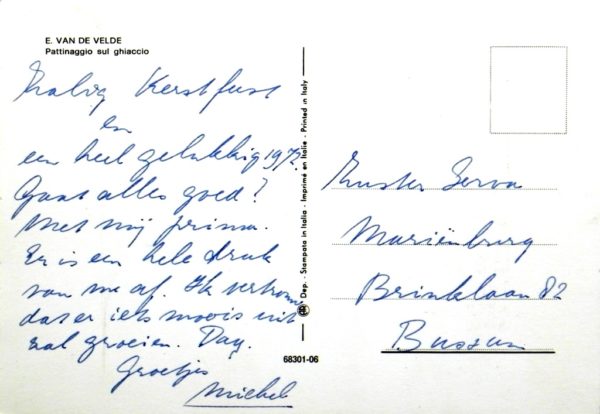 E. VAN DE VELDE
Pattinaggio sul ghiaccio
Zalig Kerstfeest
en
een heel gelukkig 1972.
Gaat alles goed?
Met mij prima.
Er is een hele druk
van me af. Ik vertrouw
dat er iets moois uit
zal groeien. Dag.
Groetjes
Michel
Dep. - Stampato in Italia - Imprimé en Italie - Printed in Italy
68301-06
Zuster Serva
Mariënburg
Brinklaan 82
Bussum